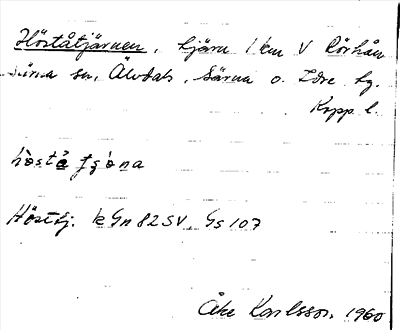 Höståtjärnen, tjärn 1 km V Rörhån
Särna sn, Älvdals, Särna o. Idre tg.
Kopp l.
Hösttj. k Gn 82 SV, Gs 107
Åke Karlsson, 1960